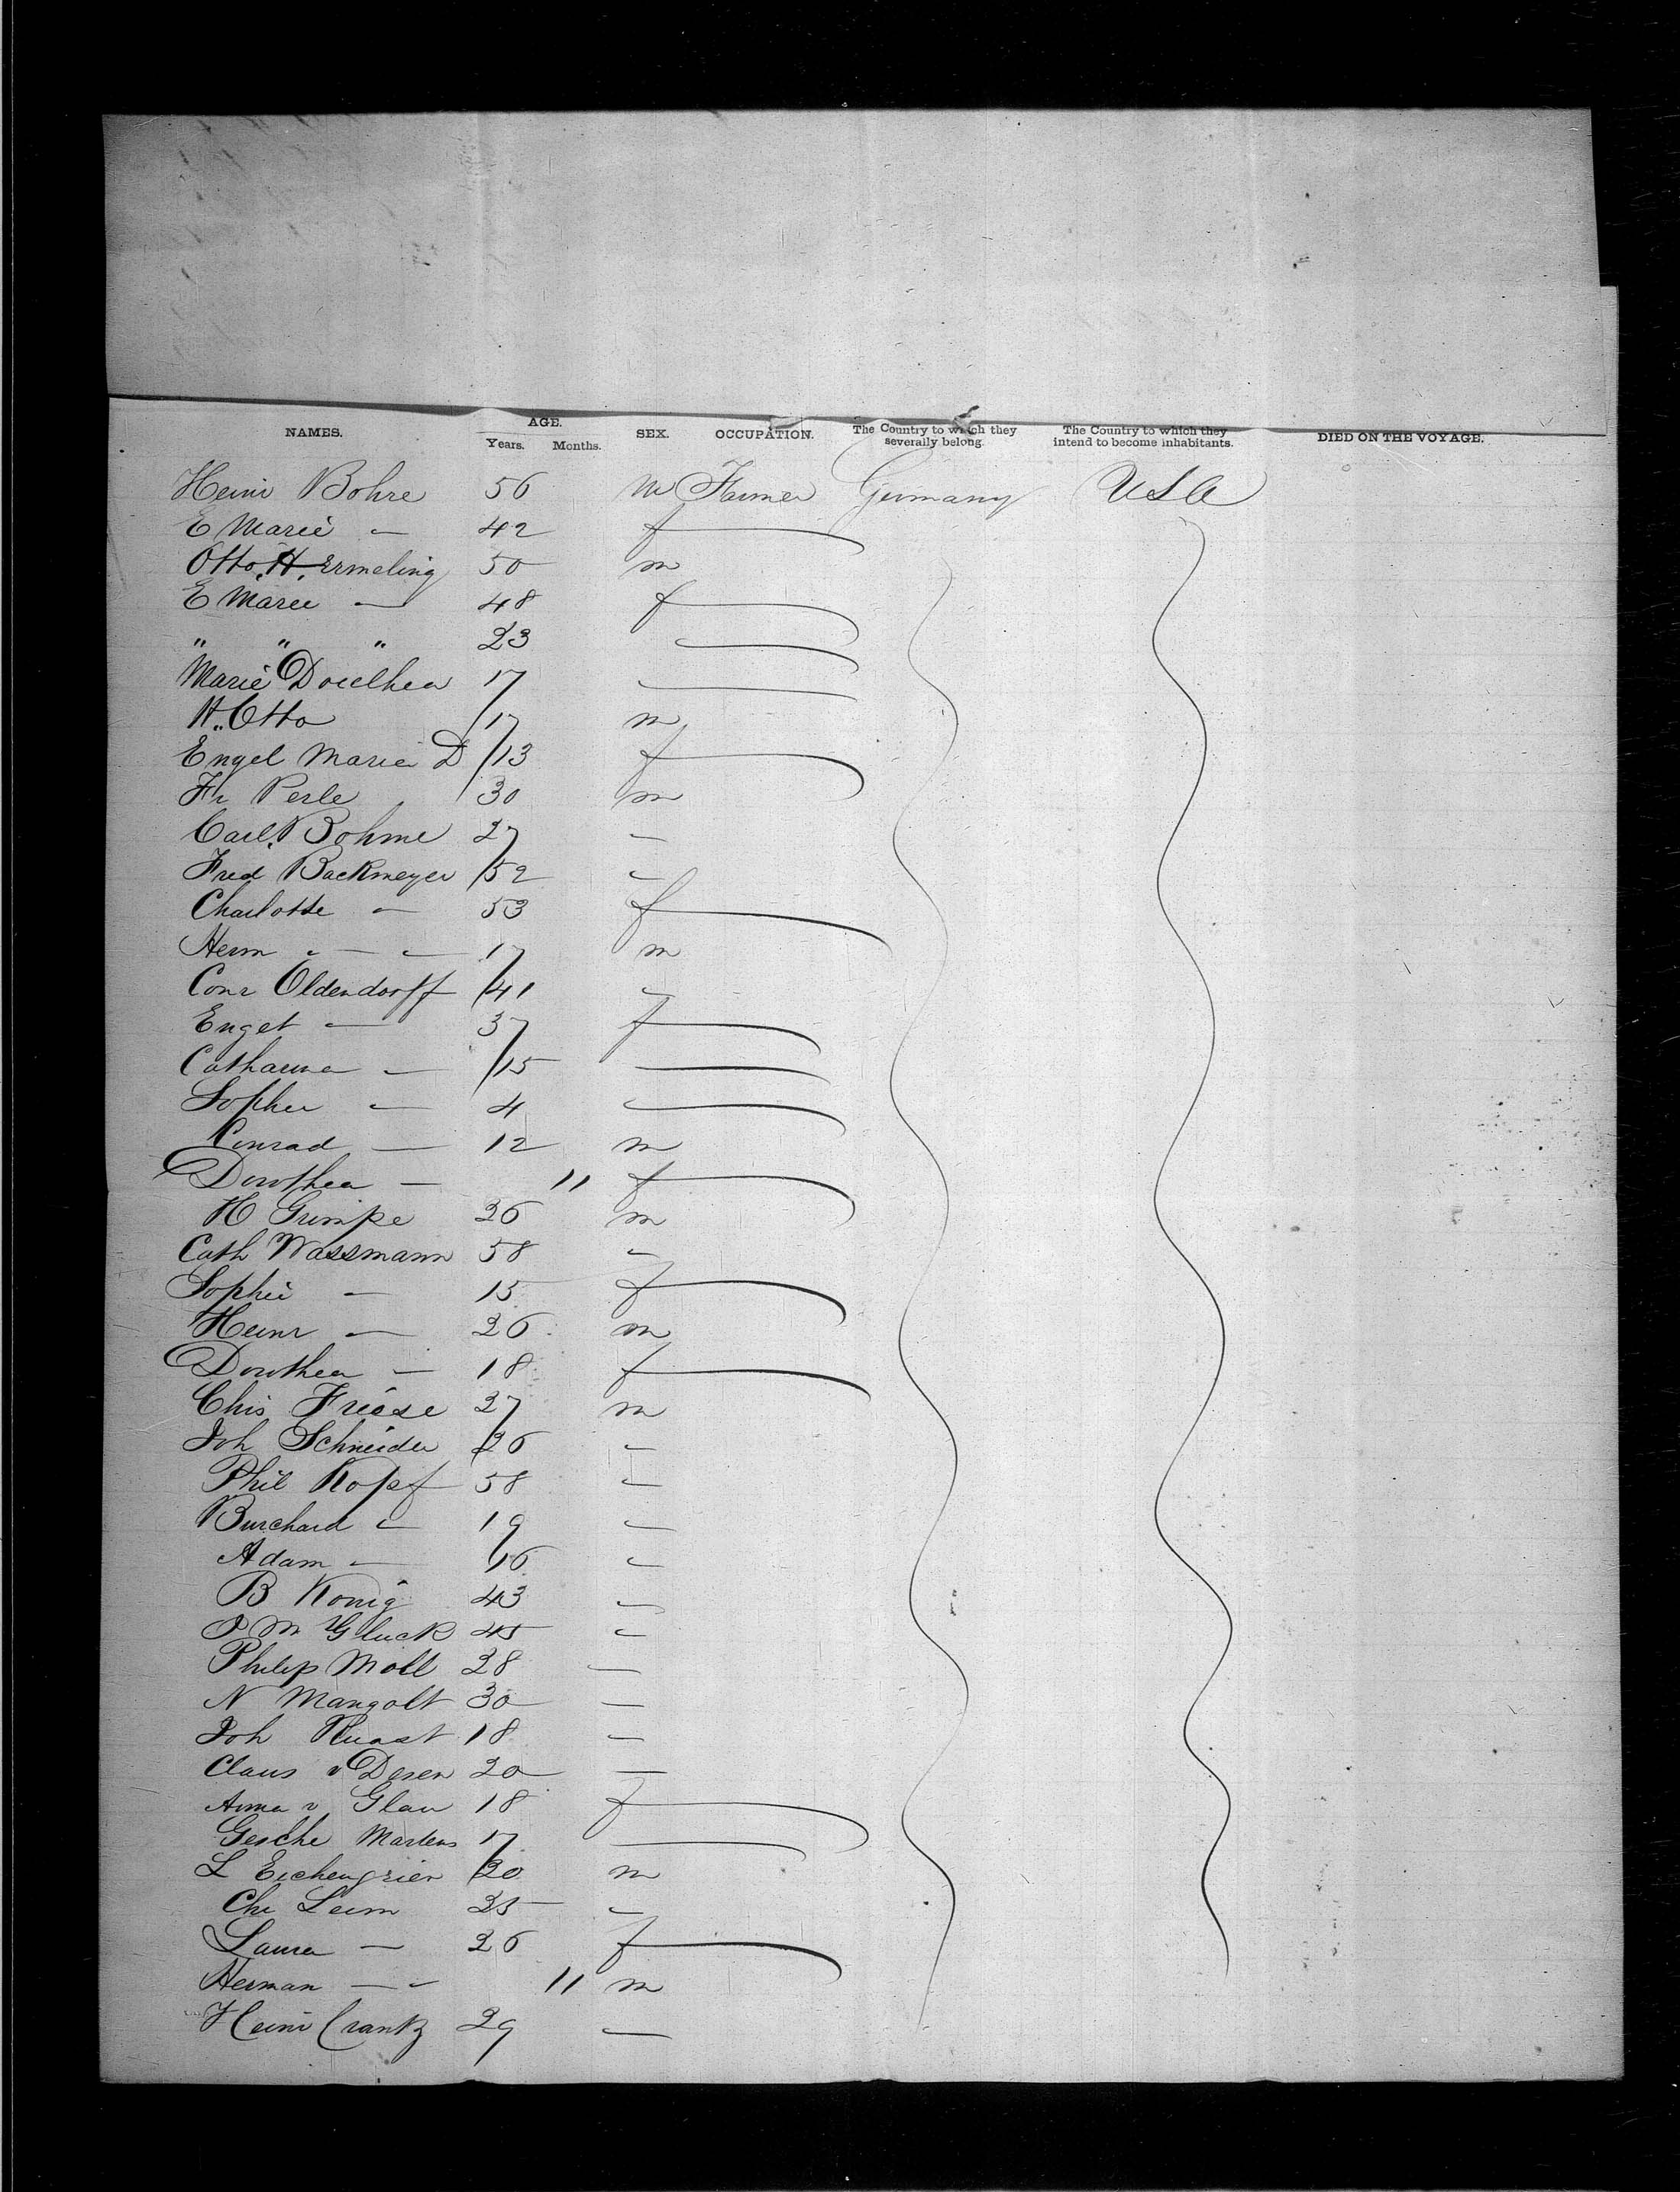 NAMES. AGE. Years. Months. SEX. OCCUPATION. The Country to which they severally belong. The Country to which they intend to become inhabitants. DIED ON THE VOYAGE.
Heinr Bohre 56 m Farmer Germany USA
E Marie — 42 f
Otto H. Ermeling 50 m
E Marie — 48 f
" " " 23
Marie Dorethea 17
H. Otto 17 m
Engel Marie D 13 f
Fr Perle 30 m
Carl Bohme 27 —
Fred Backmeyer 52 —
Charlotte — 53 f
Herm — — 17 m
Conr Oldendorff 41 —
Engel — 37 f
Catharina — 15
Sophie — 4
Conrad — 12 m
Dorothea — 11 f
H Grimpe 26 m
Cath Wassmann 58 —
Sophie — 15 f
Heinr — 26 m
Dorothea — 18 f
Chr Friese 27 m
Joh Schneider 26 —
Phil Kopf 58 —
Burchard — 19 —
Adam — 16 —
B Konig 43 —
J M Gluck 45 —
Philip Moll 28 —
N Mangolt 30 —
Joh 18 —
Claus v 20 —
Anna v Glan 18 f
Gesche Martens 17
L Eichengrien 20 m
Chr Leim 35 —
Laura — 26 f
Herman — — 11 m
Heinr Crantz 29 —